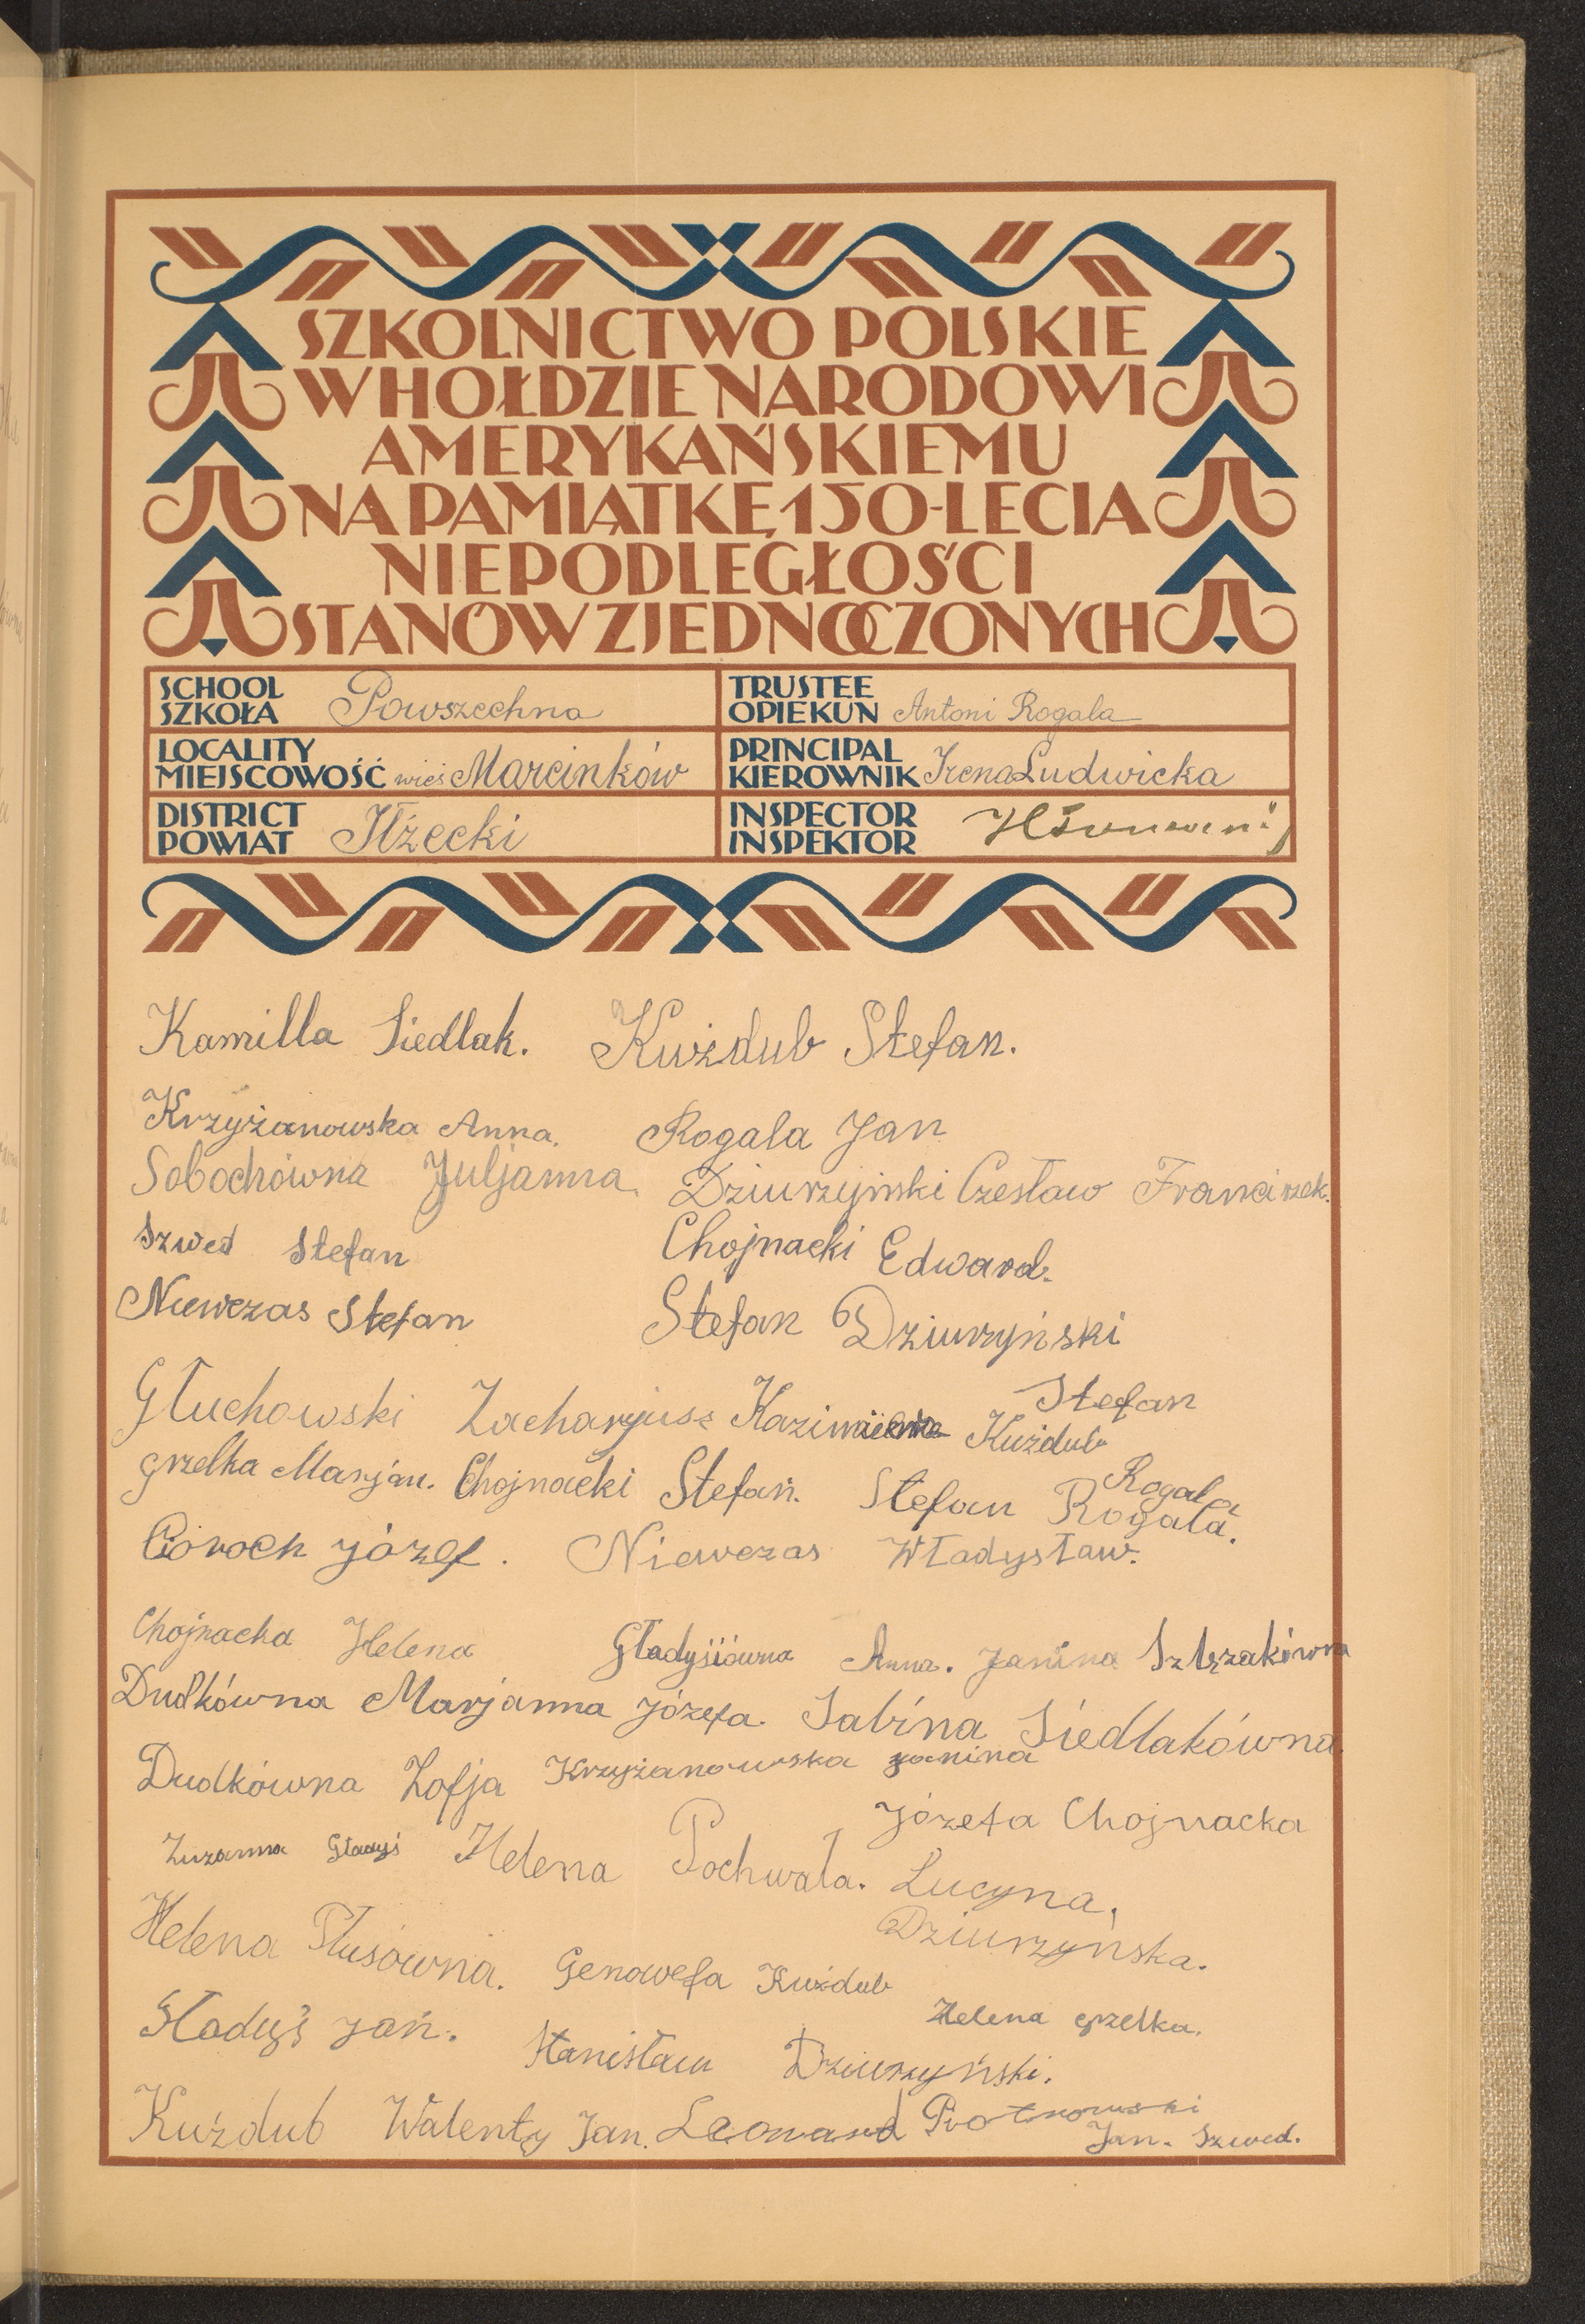 SZKOLNICTWO POLSKIE
W HOŁDZIE NARODOWI
AMERYKAŃSKIEMU
NA PAMIĄTKĘ 150-LECIA
NIEPODLEGŁOŚCI
STANÓW ZJEDNOCZONYCH
SCHOOL
SZKOŁA Powszechna
TRUSTEE
OPIEKUN Antoni Rogala
LOCALITY
MIEJSCOWOŚĆ wieś Marcinków
PRINCIPAL
KIEROWNIK Irena Ludwicka
DISTRICT
POWIAT Iłżecki
INSPECTOR
INSPEKTOR
Kamilla Siedlak. Kuźdub Stefan.
Krzyżanowska Anna. Rogala Jan
Sobochówna Juljanna. Dziurzyński Czesław Franciszek.
Szwed Stefan Chojnacki Edward.
Niewczas Stefan Stefan Dziurzyński
Głuchowski Zacharyjusz Kazimierz Stefan Kuźdub
Grzelka Marjan. Chojnacki Stefan. Stefan Rogala Rogala.
Goroch Józef. Niewczas Władysław.
Chojnacka Helena Gładysiówna Anna. Janina
Dudkówna Marjanna Józefa. Sabina Siedlakówna.
Dudkówna Zofja Krzyżanowska Janina
Józefa Chojnacka
Zuzanna Gładyś Helena Pochwała. Lucyna,
Dziurzyńska.
Helena Płusówna. Genowefa Kuźdub
Helena Grzelka.
Gładyś Jan. Stanisław Dziurzyński.
Kuźdub Walenty Jan. Leonard Piotrowski
Jan. Szwed.